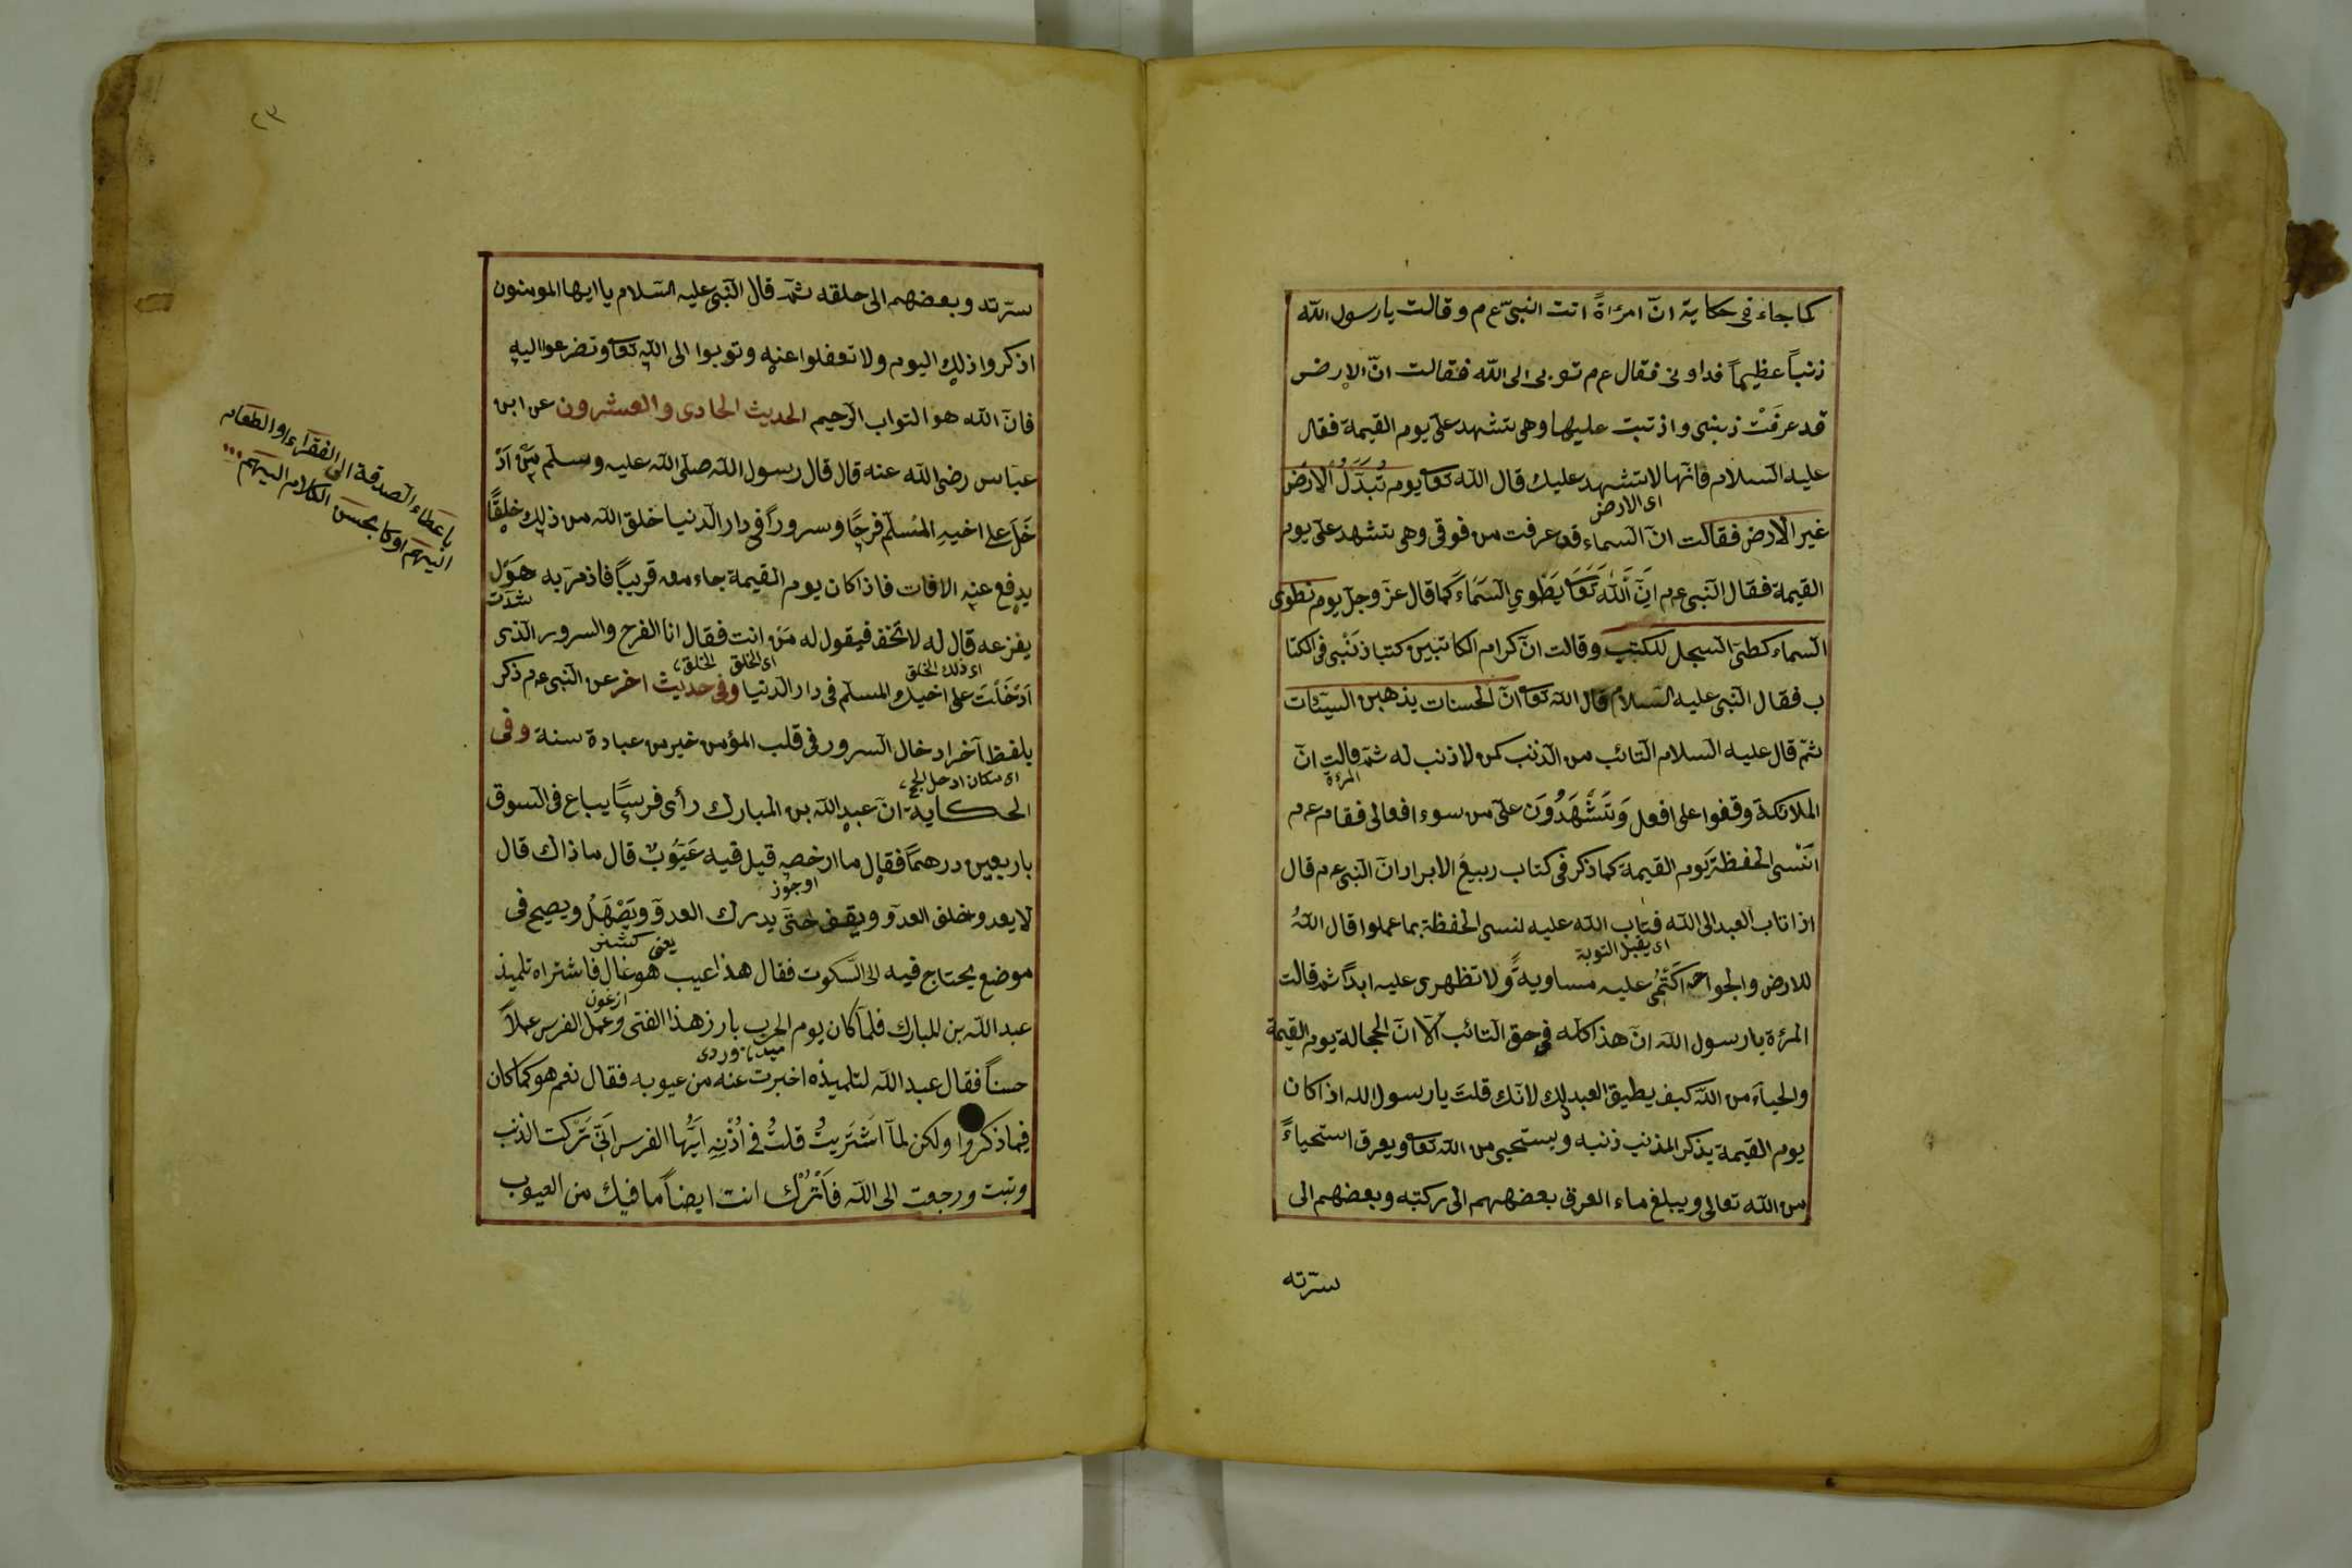 كما جاء فى حكاية انّ امرٔاةً اتت النبىّ ع م وقالت يا رسول الله
ذنباً عظيماً فداونى فقال ع م توبى الى الله فقالت انّ الارض
قد عرفَتْ ذنبى واذنبت عليها وهى تشهد علىّ يوم القيمة فقال
عليه السلام فانّها لا تشهد عليك قال الله تعا يوم تُبَدَّلُ الارض
اى الارض
غير الارض فقالت انّ السماء قد عرفت من فوقى وهى تشهد علىّ يوم
القيمة فقال النبى ع م اِنَّ اللّٰهَ تَعَا يَطْوِي السَمَاءَ كما قال عزّ وجلّ يوم نطوى
السماء كطىّ السجل للكتب وقالت انّ كرام الكاتبين كتبا ذنْبى فى الكتا
ب فقال النبى عليه السلام قال الله تعا انّ الحسنات يذهبن السيّئات
ثمّ قال عليه السلام التائب من الذنب كمن لا ذنب له ثمّ قالت انّ
المرٔة
الملائكة وقفوا على افعل وَتَشْهَدُونَ علىّ من سوء افعالى فقام ع م
اَنْسى الحفظةَ يوم القيمة كما ذكر فى كتاب ربيعُ الابرار انّ النبى ع م قال
اذا تاب العبد الى الله فتاب الله عليه لنسى الحفظة بما عملوا قال اللهُ
اى يقبل التوبة
للارض والجوارح اكتمى عليه مساويةً ولا تظهرى عليه ابدًا ثمّ قالت
المرٔة يا رسول الله انّ هذا كلّه فى حق التائب الّا انّ الحجالة يوم القيمة
والحياء من الله كيف يطيق العبد لك لانّك قلتَ يا رسول الله اذا كان
يوم القيمة يذكر المذنب ذنبه ويستحيى من الله تعا ويعرق استحياءً
من الله تعالى ويبلغ ماء العرق بعضهم الى ركبته وبعضهم الى
سرّته
٢٣
سرّته وبعضهم الى حلقه ثمّ قال النّبى عليه السّلام يا ايها المومنون
اذكروا ذلك اليوم ولا تغفلوا عنه وتوبوا الى الله تعا وتضرعوا اليه
فانّ الله هو التواب الرّحيم الحديث الحادى والعشرون عن ابن
عبّاس رضى الله عنه قال قال رسول الله صلّى الله عليه وسلّم مَنْ اَدْ
خَلَ على اخيهِ المُسلم فرحًا وسروراً فى دار الدنيا خلق الله من ذلك خلقًا
يدفع عنه الافات فاذا كان يوم القيمة جاء معه قريبًا فاذا مرّ به هَوْل
شدّت
يفزعه قال له لا تخف فيقول له مَن انت فقال انا الفرح والسرور الذى
اى ذلك الخلق اى الخلق الخلق
اَدْخَلْتَ على اخيك المسلم فى دار الدنيا وفى حديث اخر عن النبى ع م ذكر
بلفظ آخر ادخال السرور فى قلب المؤمن خير من عبادة سنة وفى
الحكاية انّ عبد الله بن المبارك رأى فرسًا يباع فى السوق
باربعين درهمًا فقال ما ارخصه قيل فيه عَيُوبٌ قال ما ذاك قال
لا يعدو خلف العدوّ ويقف حتّى يدرك العدوّ ويَصْهَلُ ويصيح فى
يعنى كشنر
موضع يحتاج فيه الى السّكوت فقال هذا عيب هو غال فاشتراه تلميذ
عبد الله بن المبارك فلمّا كان يوم الحرب بارز هذا الفتى وعمل الفرس عملاً
حسناً فقال عبد الله لتلميذه اخبرت عنه من عيوبه فقال نعم هو كما كان
فيما ذكروا ولكن لمّا اشتَريتُ قلتُ فى اُذْنِهِ ايّها الفرس انّى تَرَكت الذنب
وتبت ورجعت الى الله فَاَتْرُك انت ايضاً ما فيك من العيوب
باعطاء الصدقة الى الفقراء او الطعام
اليهم او كما بحسن الكلام اليهم